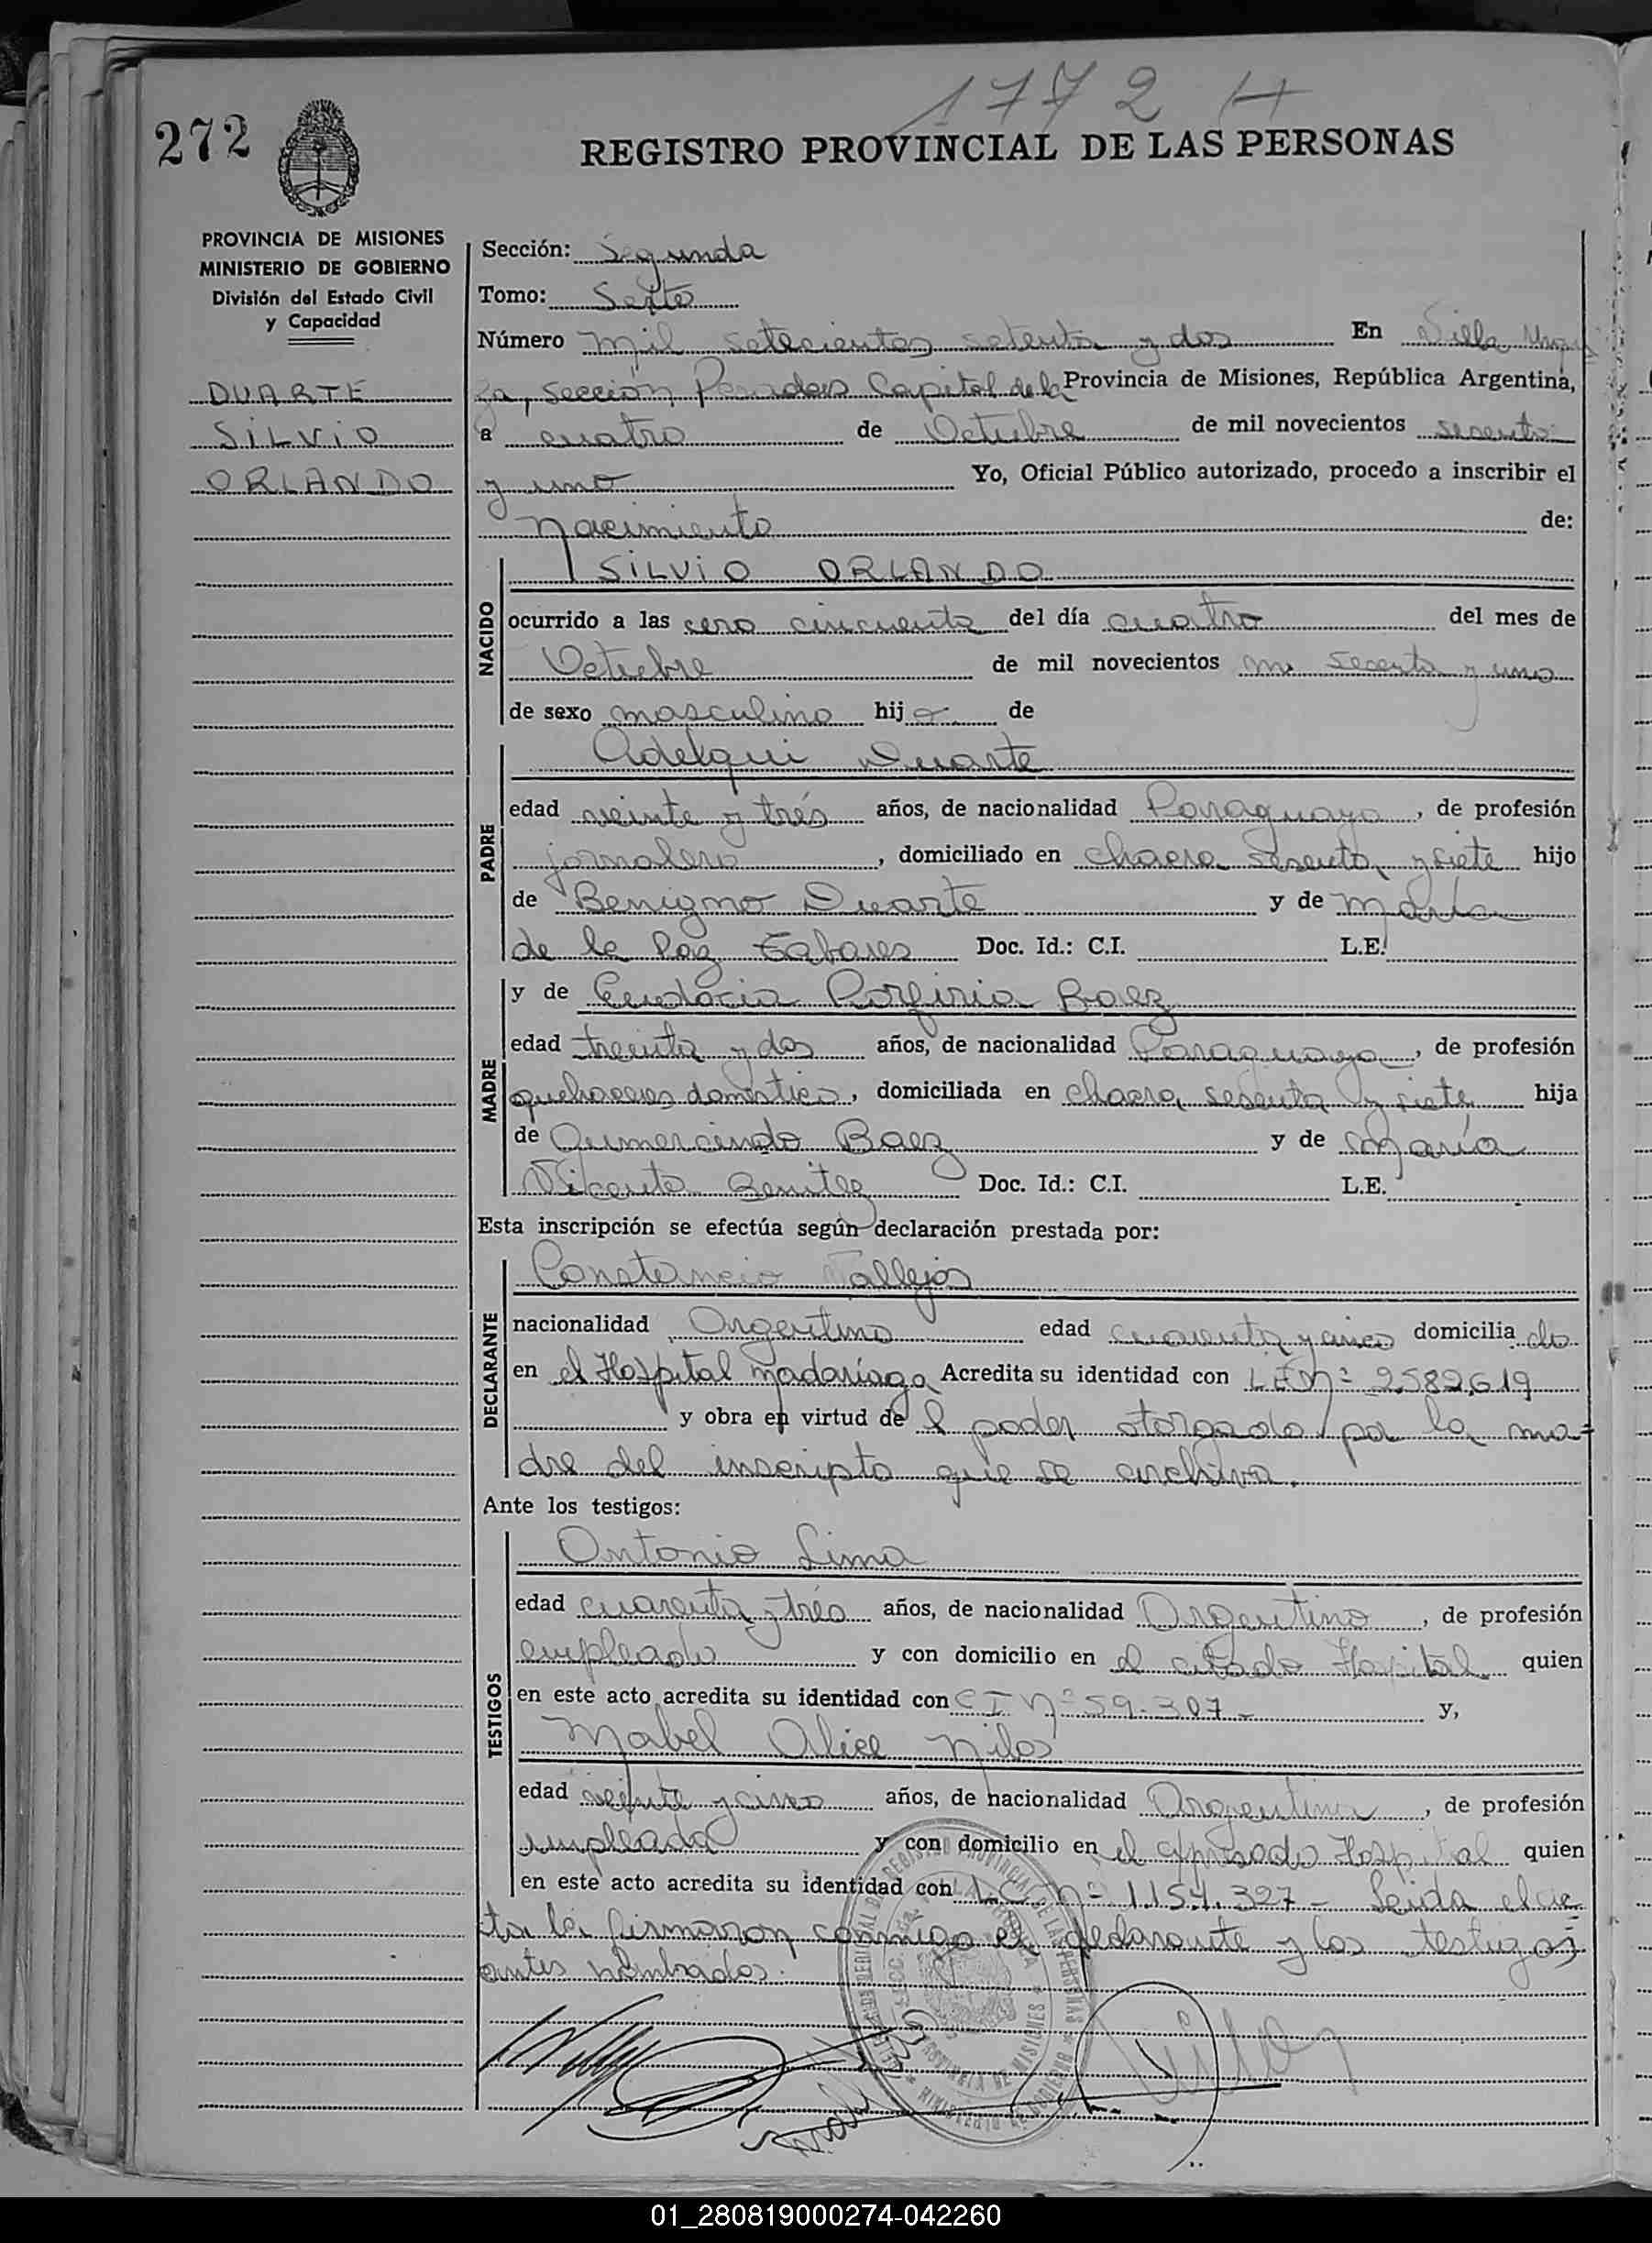 1772 H
272
REGISTRO PROVINCIAL DE LAS PERSONAS
PROVINCIA DE MISIONES
MINISTERIO DE GOBIERNO
División del Estado Civil
y Capacidad
DUARTE
SILVIO
ORLANDO
Sección: Segunda
Tomo: Sexto
Número mil setecientos setenta y dos En Villa Urqui
za, Sección Posadas Capital de la Provincia de Misiones, República Argentina,
a cuatro de Octubre de mil novecientos sesenta
y uno Yo, Oficial Público autorizado, procedo a inscribir el
nacimiento de:
NACIDO
SILVIO ORLANDO
ocurrido a las cero cincuenta del día cuatro del mes de
Octubre de mil novecientos sesenta y uno
de sexo masculino hijo de
PADRE
Adelqui Duarte
edad veinte y trés años, de nacionalidad Paraguaya, de profesión
jornalero, domiciliado en chacra sesenta y siete hijo
de Benigno Duarte y de María
de la Paz Tabares Doc. Id.: C.I. L.E.
MADRE
y de Eudocia Porfiria Baez
edad treinta y dos años, de nacionalidad Paraguaya, de profesión
quehaceres domestico, domiciliada en chacra sesenta y siete hija
de Gumercindo Baez y de María
Vicenta Benitez Doc. Id.: C.I. L.E.
Esta inscripción se efectúa según declaración prestada por:
DECLARANTE
Constancio Vallejos
nacionalidad Argentino edad cuarenta y cinco domiciliado
en el Hospital Madariaga Acredita su identidad con L.E Nº 2.582.619
y obra en virtud del poder otorgado por la ma=
dre del inscripto que se archiva.
Ante los testigos:
TESTIGOS
Antonio Lima
edad cuarenta y trés años, de nacionalidad Argentino, de profesión
empleado y con domicilio en el citado Hospital quien
en este acto acredita su identidad con C I Nº 59.307 - y,
Mabel Alice Nilos
edad veinte y cinco años, de nacionalidad Argentina, de profesión
empleada y con domicilio en el expresado Hospital quien
en este acto acredita su identidad con L.C Nº 1.154.327 - Leida el ac
ta la firmaron conmigo el declarante y los testigos
antes nombrados.
01_280819000274-042260